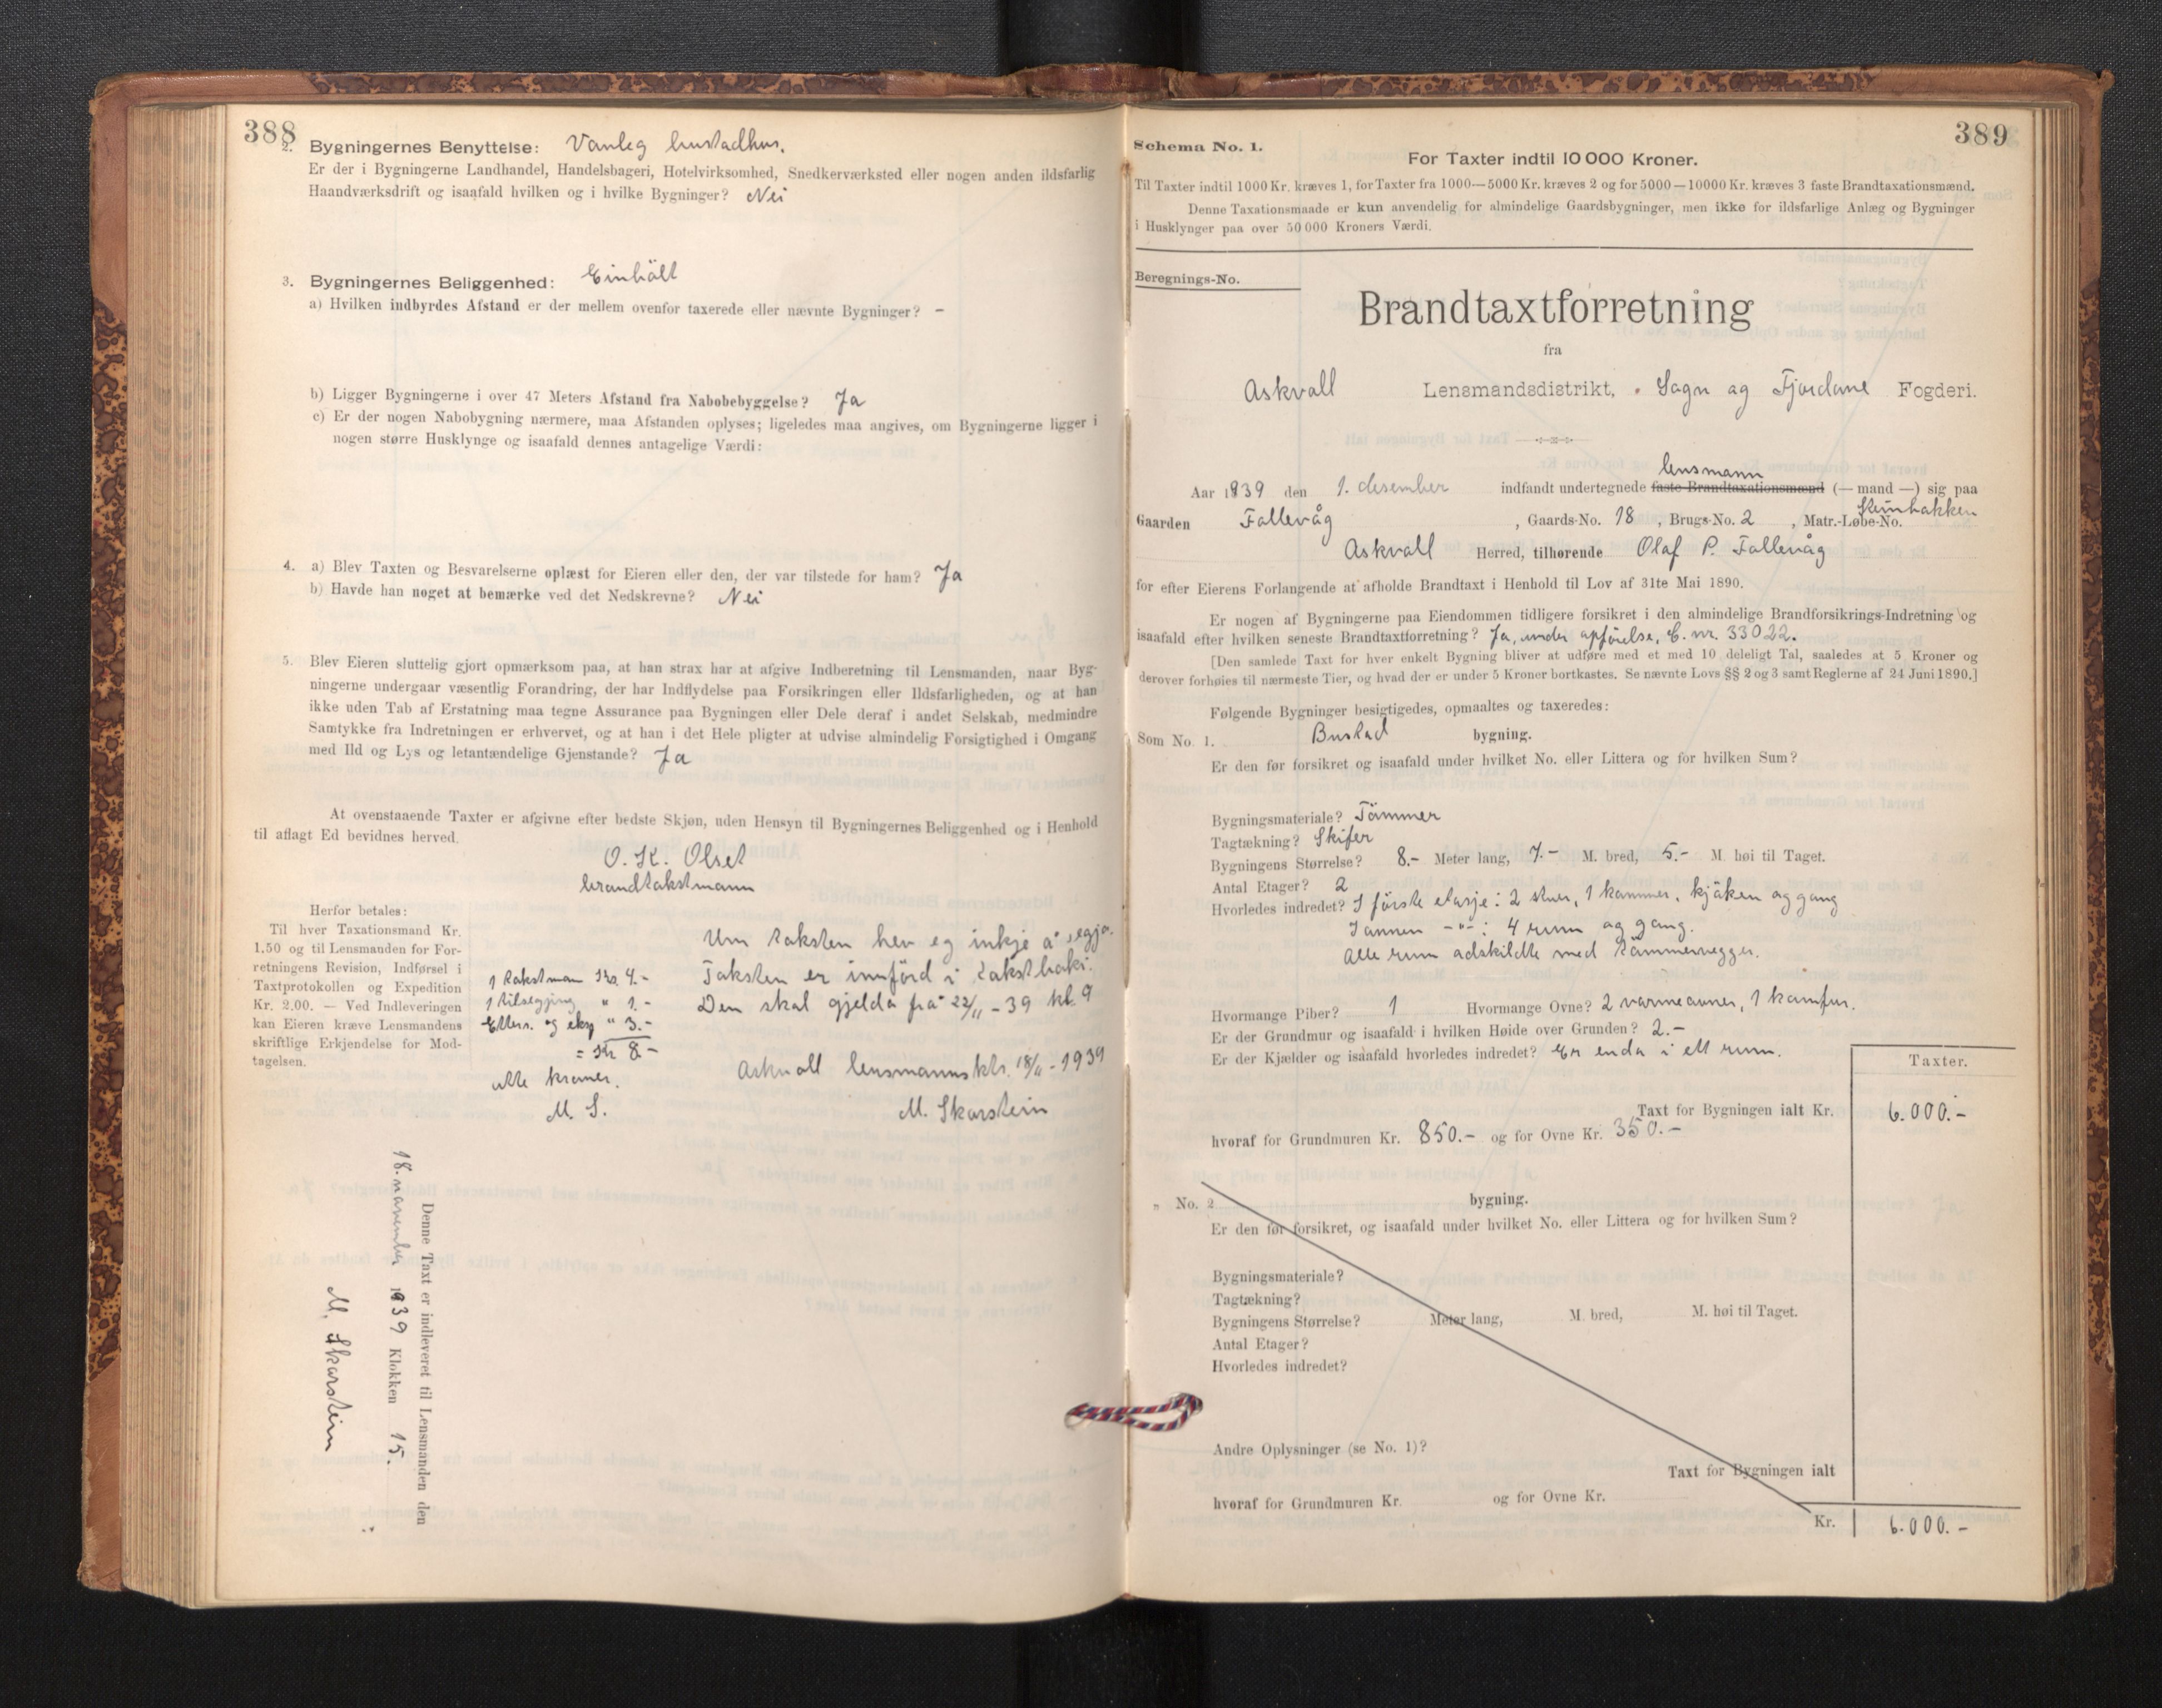 388
2. Bygningernes Benyttelse: Vanleg bustadhus.
Er der i Bygningerne Landhandel, Handelsbageri, Hotelvirksomhed, Snedkerværksted eller nogen anden ildsfarlig
Haandværksdrift og isaafald hvilken og i hvilke Bygninger? Nei
3. Bygningernes Beliggenhed: Einbölt
a) Hvilken indbyrdes Afstand er der mellem ovenfor taxerede eller nævnte Bygninger? -
b) Ligger Bygningerne i over 47 Meters Afstand fra Nabobebyggelse? Ja
c) Er der nogen Nabobygning nærmere, maa Afstanden oplyses; ligeledes maa angives, om Bygningerne ligger i
nogen større Husklynge og isaafald dennes antagelige Værdi:
4. a) Blev Taxten og Besvarelserne oplæst for Eieren eller den, der var tilstede for ham? Ja
b) Havde han noget at bemærke ved det Nedskrevne? Nei
5. Blev Eieren sluttelig gjort opmærksom paa, at han strax har at afgive Indberetning til Lensmanden, naar Byg-
ningerne undergaar væsentlig Forandring, der har Indflydelse paa Forsikringen eller Ildsfarligheden, og at han
ikke uden Tab af Erstatning maa tegne Assurance paa Bygningen eller Dele deraf i andet Selskab, medmindre
Samtykke fra Indretningen er erhvervet, og at han i det Hele pligter at udvise almindelig Forsigtighed i Omgang
med Ild og Lys og letantændelige Gjenstande? Ja
At ovenstaaende Taxter er afgivne efter bedste Skjøn, uden Hensyn til Bygningernes Beliggenhed og i Henhold
til aflagt Ed bevidnes herved.
O. K. Olset
brandtakstmann
Herfor betales:
Til hver Taxationsmand Kr.
1.50 og til Lensmanden for For-
retningens Revision, Indførsel i
Taxtprotokollen og Expedition
Kr. 2.00. — Ved Indleveringen
kan Eieren kræve Lensmandens
skriftlige Erkjendelse for Mod-
tagelsen.
1 takstman Kr. 4.-
1 tilsegjing " 1.-
Etters. og eksp " 3.-
= Kr 8-
åtte kroner.
M. S.
Um taksten hev eg inkje å segja.
Taksten er innförd i takstboki.
Den skal gjelda frå 22/11 - 39 kl. 9
Askvoll lensmannsktr. 18/11 - 1939
M. Skarstein
Denne Taxt er indleveret til Lensmanden den
18. november 1939 Klokken 15.
M. Skarstein
389
Schema No. 1.
For Taxter indtil 10 000 Kroner.
Til Taxter indtil 1000 Kr. kræves 1, for Taxter fra 1000—5000 Kr. kræves 2 og for 5000—10000 Kr. kræves 3 faste Brandtaxationsmænd.
Denne Taxationsmaade er kun anvendelig for almindelige Gaardsbygninger, men ikke for ildsfarlige Anlæg og Bygninger
i Husklynger paa over 50 000 Kroners Værdi.
Beregnings-No.
Brandtaxtforretning
fra
Askvoll Lensmandsdistrikt, Sogn og Fjordane Fogderi.
lensmann
Aar 1939 den 1. desember indfandt undertegnede faste Brandtaxationsmænd (— mand —) sig paa
Gaarden Follevåg, Gaards-No. 18, Brugs-No. 2, Matr.-Løbe-No. Steinbakken
Askvoll Herred, tilhørende Olaf P. Follevåg
for efter Eierens Forlangende at afholde Brandtaxt i Henhold til Lov af 31te Mai 1890.
Er nogen af Bygningerne paa Eiendommen tidligere forsikret i den almindelige Brandforsikrings-Indretning og
isaafald efter hvilken seneste Brandtaxtforretning? Ja, under opförelse, B. nr. 33022.
[Den samlede Taxt for hver enkelt Bygning bliver at udføre med et med 10 deleligt Tal, saaledes at 5 Kroner og
derover forhøies til nærmeste Tier, og hvad der er under 5 Kroner bortkastes. Se nævnte Lovs §§ 2 og 3 samt Reglerne af 24 Juni 1890.]
Følgende Bygninger besigtigedes, opmaaltes og taxeredes:
Som No. 1. Bustad bygning.
Er den før forsikret og isaafald under hvilket No. eller Littera og for hvilken Sum?
Bygningsmateriale? Tömmer
Tagtækning? Skifer
Bygningens Størrelse? 8.- Meter lang, 7.- M. bred, 5.- M. høi til Taget.
Antal Etager? 2
Hvorledes indredet? I förste etasje: 2 stuer, 1 kammer, kjöken og gang
I annen -"-: 4 rum og gang.
Alle rum adskildte med tömmervegger.
Hvormange Piber? 1 Hvormange Ovne? 2 varmeovner, 1 komfur.
Er der Grundmur og isaafald i hvilken Høide over Grunden? 2.-
Er der Kjælder og isaafald hvorledes indredet? Er enda i ett rum.
Taxter.
Taxt for Bygningen ialt Kr. 6.000.-
hvoraf for Grundmuren Kr. 850.- og for Ovne Kr. 350.-
" No. 2 bygning.
Er den før forsikret, og isaafald under hvilket No. eller Littera og for hvilken Sum?
Bygningsmateriale?
Tagtækning?
Bygningens Størrelse? Meter lang, M. bred, M. høi til Taget.
Antal Etager?
Hvorledes indredet?
Andre Oplysninger (se No. 1)?
Taxt for Bygningen ialt
hvoraf for Grundmuren Kr. og for Ovne Kr.
Kr. 6.000.-